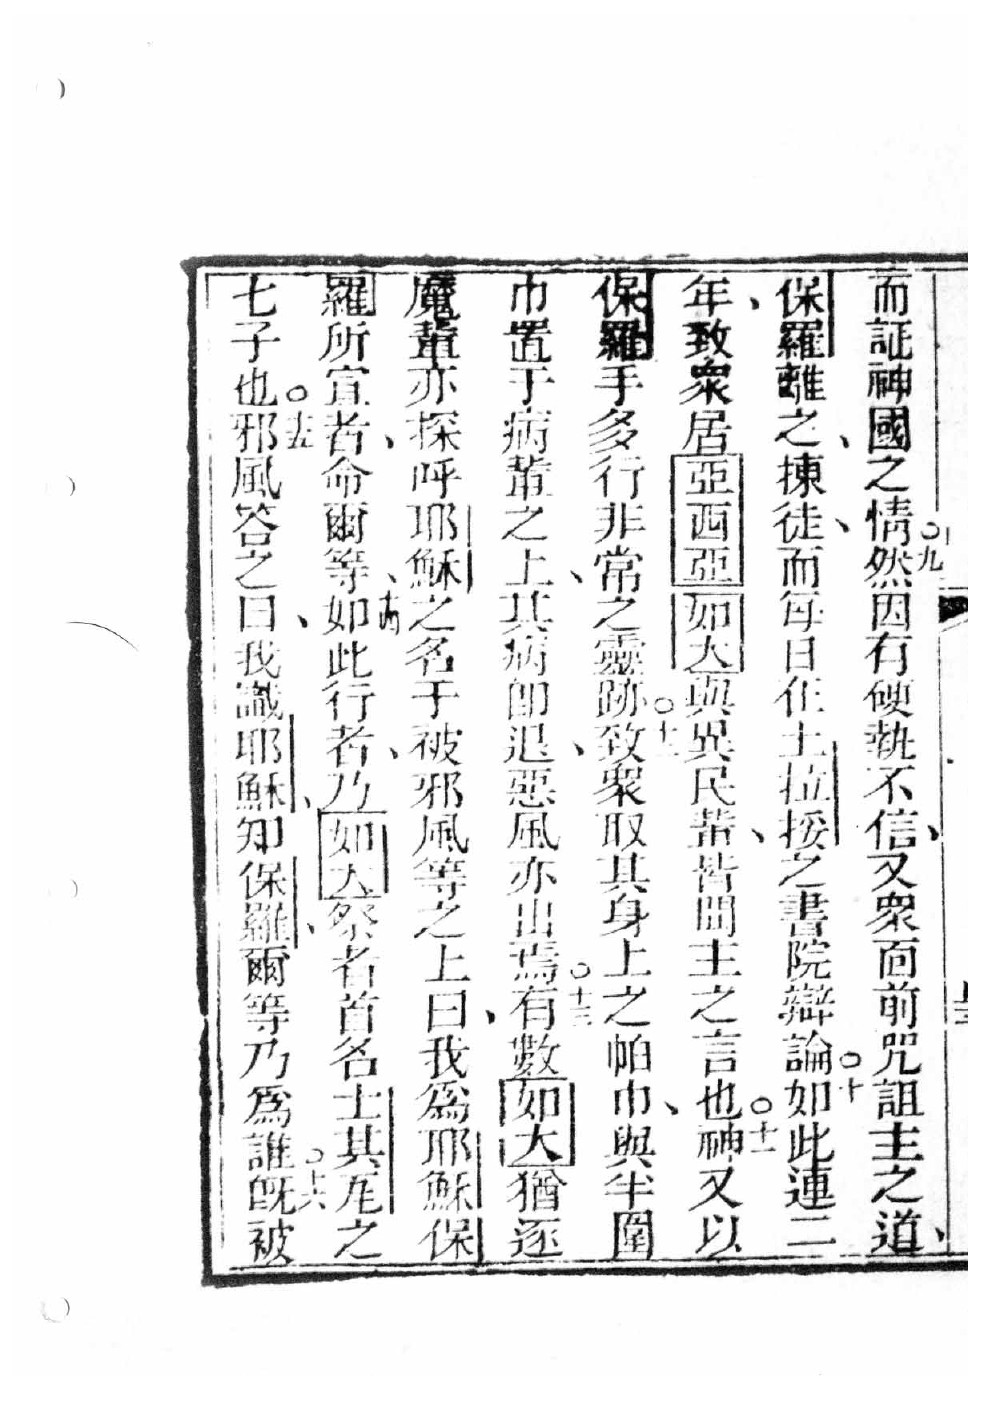 而証神國之情○九然因有硬執不信、又衆面前咒詛主之道、
保羅離之、揀徒、而每日在土拉挼之書院辯論○十如此連二
年、致衆居亞西亞如大與異民輩、皆聞主之言也○十一神又以
保羅手多行非常之靈跡○十二致衆取其身上之帕巾、與半圍
巾置于病輩之上、其病卽退、惡風亦出焉○十三有數如大猶逐
魔輩亦探呼耶穌之名于被邪風等之上曰、我爲耶穌保
羅所宣者、命爾等、十四如此行者、乃如大祭者首名士其瓦之
七子也○十五邪風答之曰、我識耶穌、知保羅、爾等乃爲誰○十六旣被